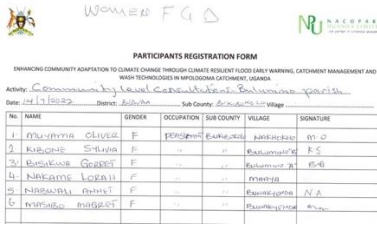 WOMEN FGD
NACOPAR
UGANDA LIMITED
PARTICIPANTS REGISTRATION FORM
ENHANCING COMMUNITY ADAPTATION TO CLIMATE CHANGE THROUGH CLIMATE RESILIENT FLOOD EARLY WARNING, CATCHMENT MANAGEMENT AND
WASH TECHNOLOGIES IN MPOLOGOMA CATCHMENT, UGANDA
Activity: Community level Consultations Bulumino parish
Date: 14/7/2022 District: Sub County: Village
No. NAME GENDER OCCUPATION SUB COUNTY VILLAGE SIGNATURE
1 MUYAMA OLIVER F PEASANT NAKHOKHO M.O
2 KIBONE SYLVIA F " " BULUMINO "B" K S
3 BISIKWA GORRET F " " BULUMINO "A" B.G
4 NAKAME LORAH F " "
5 NABWALI ANNET F " " N A
6 MASIBO MAGRET F " "